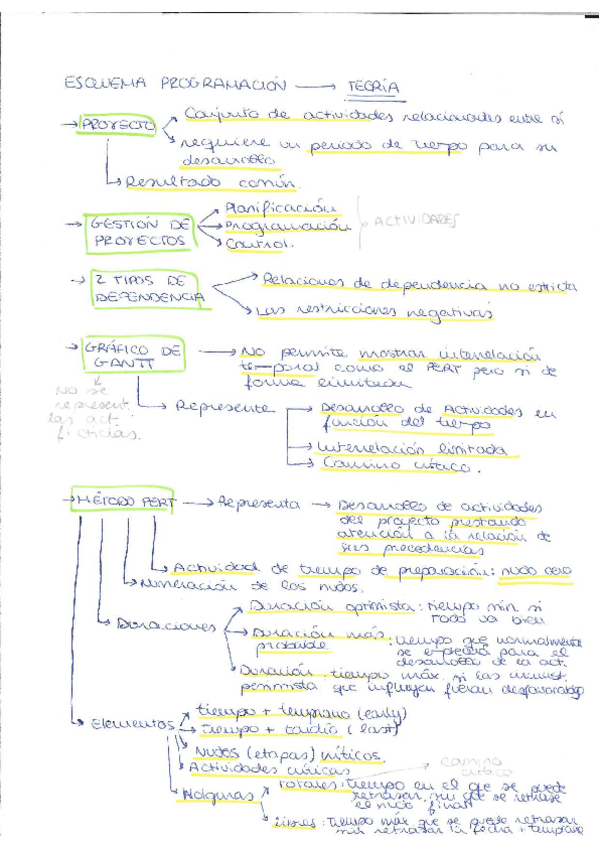 ESQUEMA PROGRAMACIÓN → TEORÍA
→ PROYECTO
Conjunto de actividades relacionadas entre sí
requiere un periodo de tiempo para su
desarrollo
Resultado común.
→ GESTIÓN DE
PROYECTOS
Planificación
Programación
Control.
ACTIVIDADES
→ 2 TIPOS DE
DEPENDENCIA
Relaciones de dependencia no estricta
Las restricciones negativas
→ GRÁFICO DE
GANTT
No se
represent.
las act.
ficticias.
→ No permite mostrar interrelación
temporal como el PERT pero si de
forma limitada
→ Representa
Desarrollo de Actividades en
función del tiempo
Interrelación limitada
Camino crítico.
→ MÉTODO PERT → Representa → Desarrollo de actividades
del proyecto prestando
atención a la relación de
sus precedencias
Actividad de tiempo de preparación: nudo cero
Numeración de los nudos.
Duraciones
Duración optimista: tiempo min. si
todo va bien
Duración más
probable.
tiempo que normalmente
se para el
desarrollo de la act.
Duración
pesimista
tiempo máx. si las
que influyen fueran
Elementos
tiempo + temprano (early)
tiempo + tardío (last)
Nudos (etapas) críticos.
Actividades críticas
camino
crítico
Holguras
totales: tiempo en el que se puede
retrasar, sin que se retrase
el nudo final
libres: tiempo máx que se puede retrasar
sin retrasar la fecha + temprana